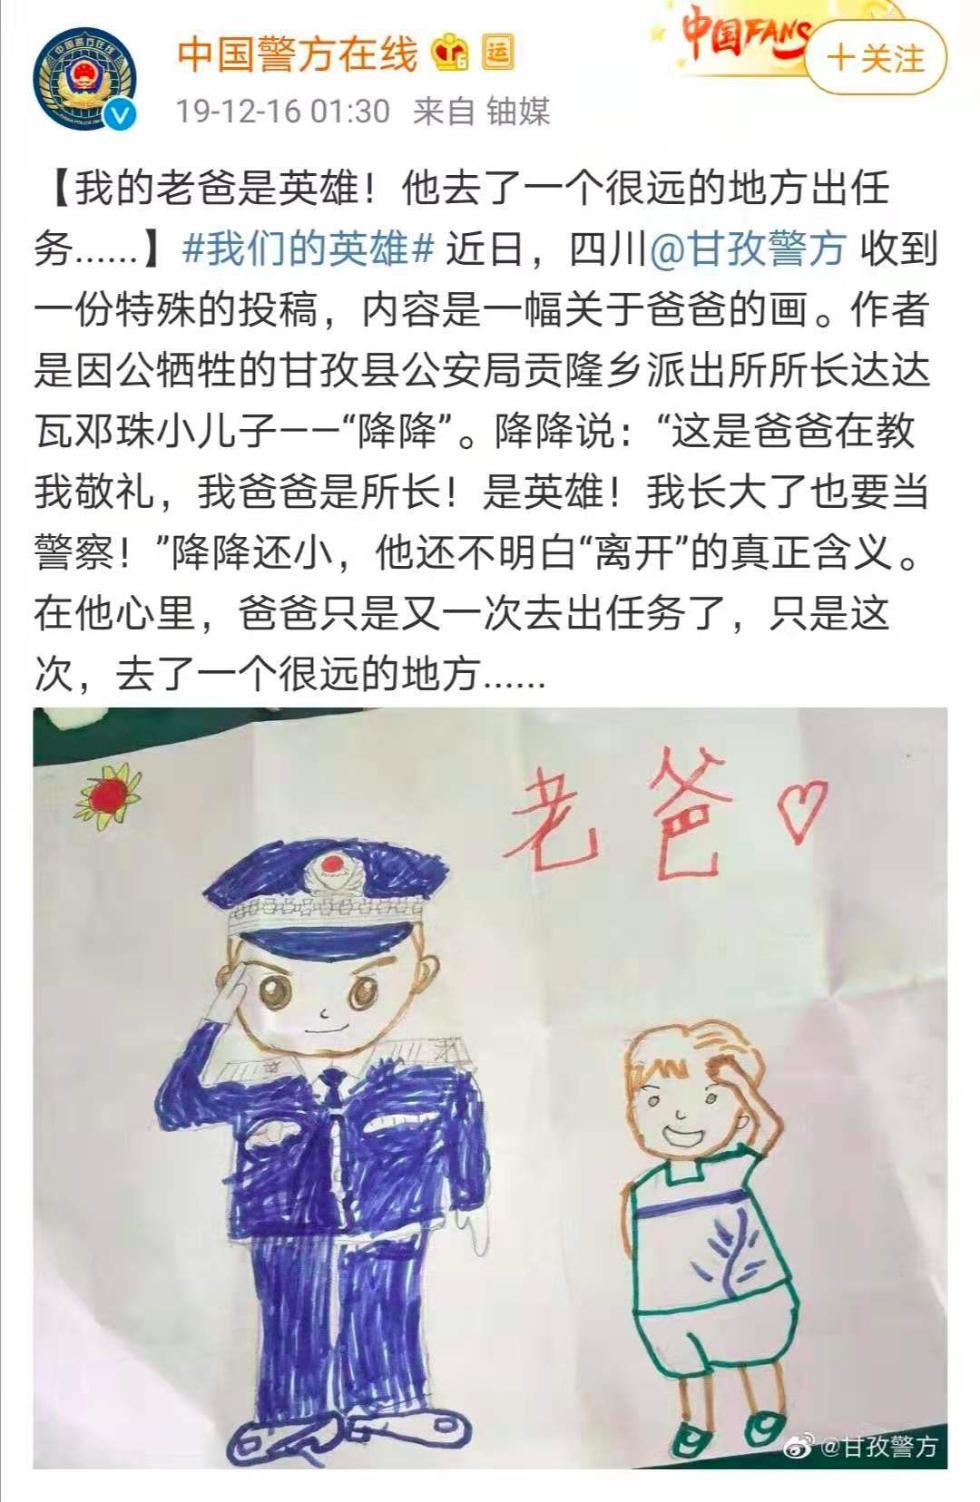 中国警方在线 运
中国FANS
+关注
19-12-16 01:30 来自 铀媒
【我的老爸是英雄！他去了一个很远的地方出任
务......】#我们的英雄# 近日，四川@甘孜警方 收到
一份特殊的投稿，内容是一幅关于爸爸的画。作者
是因公牺牲的甘孜县公安局贡隆乡派出所所长达达
瓦邓珠小儿子——“降降”。降降说：“这是爸爸在教
我敬礼，我爸爸是所长！是英雄！我长大了也要当
警察！”降降还小，他还不明白“离开”的真正含义。
在他心里，爸爸只是又一次去出任务了，只是这
次，去了一个很远的地方......
老爸
@甘孜警方